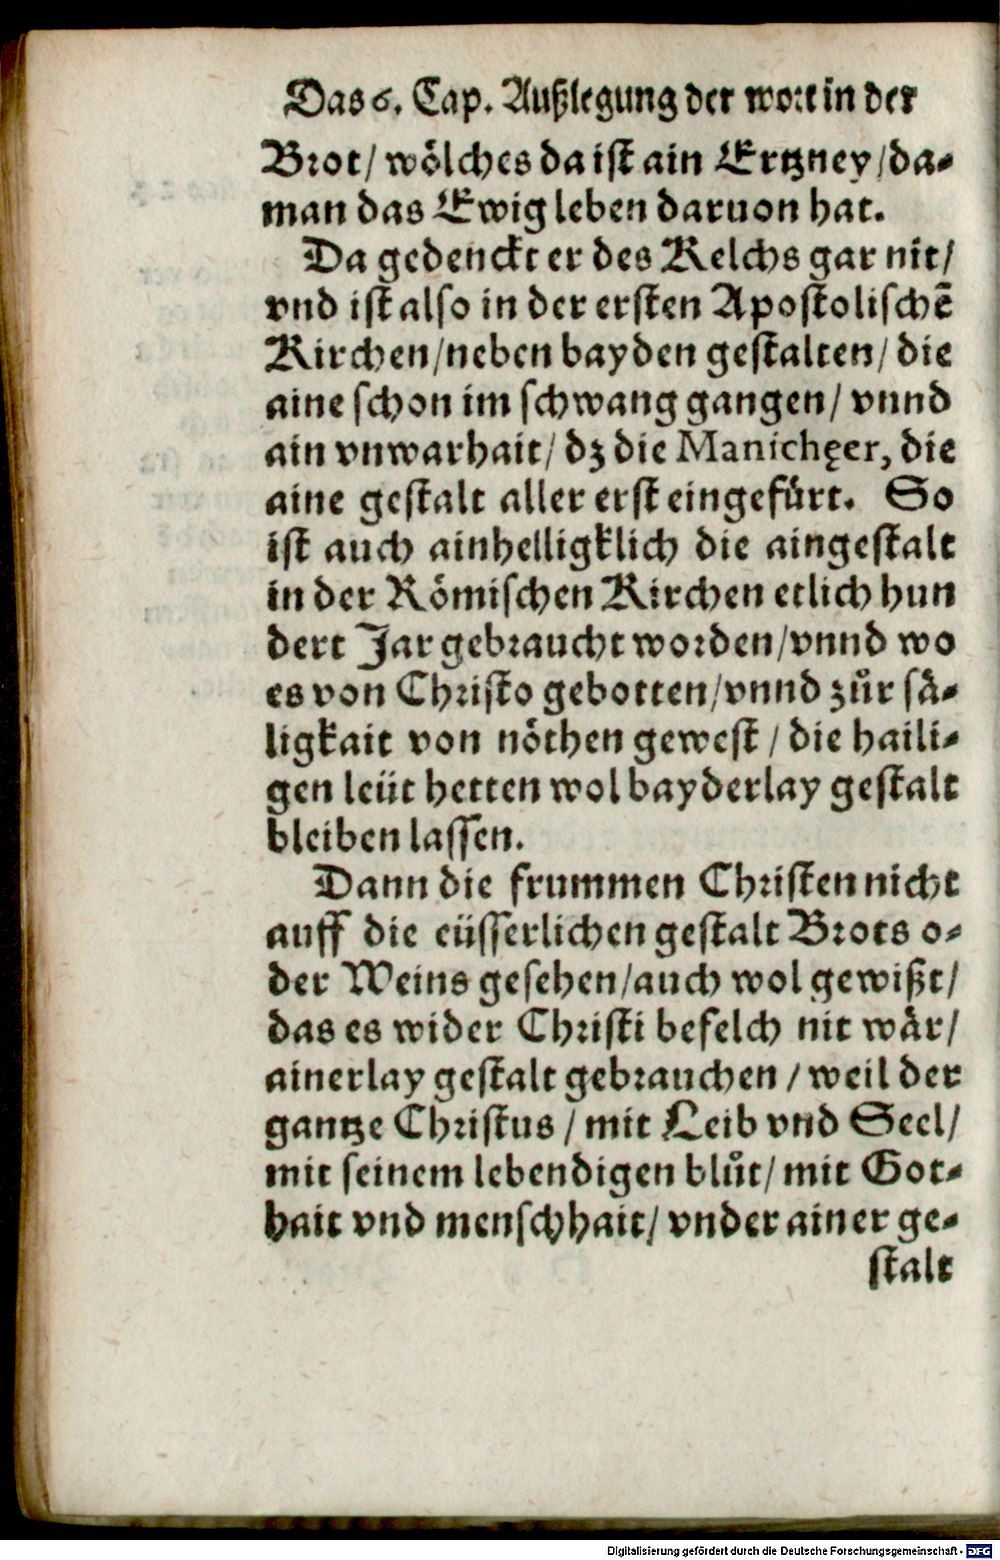 Das 6. Cap. Außlegung der wort in der
Brot/ wölches da ist ain Ertzney/da-
man das Ewig leben daruon hat.
Da gedenckt er des Kelchs gar nit/
vnd ist also in der ersten Apostolischē
Kirchen/neben bayden gestalten/ die
aine schon im schwang gangen/ vnnd
ain vnwarhait/ dz die Manichęer, die
aine gestalt aller erst eingefürt. So
ist auch ainhelligklich die aingestalt
in der Römischen Kirchen etlich hun
dert Jar gebraucht worden/vnnd wo
es von Christo gebotten/vnnd zůr sä-
ligkait von nöthen gewest / die haili-
gen leüt hetten wol bayderlay gestalt
bleiben lassen.
Dann die frummen Christen nicht
auff die eüsserlichen gestalt Brots o-
der Weins gesehen/auch wol gewißt/
das es wider Christi befelch nit wär/
ainerlay gestalt gebrauchen / weil der
gantze Christus / mit Leib vnd Seel/
mit seinem lebendigen blůt/ mit Got-
hait vnd menschhait/ vnder ainer ge-
stalt
Digitalisierung gefördert durch die Deutsche Forschungsgemeinschaft - DFG